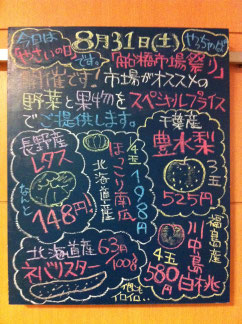 今日は
「やさいの日」
です。
8月31日(土)
やっちゃば
「船橋市場祭り」
開催です! 市場がオススメの
野菜と果物をスペシャルプライス
でご提供します。
長野産
レタス
148円
北海道産
ほっこり南瓜
198円
千葉産
豊水梨
3玉
525円
北海道産
ネバリスター
63円
100g
福島産
川中島白桃
4玉
580円
他にも
イロイロ...